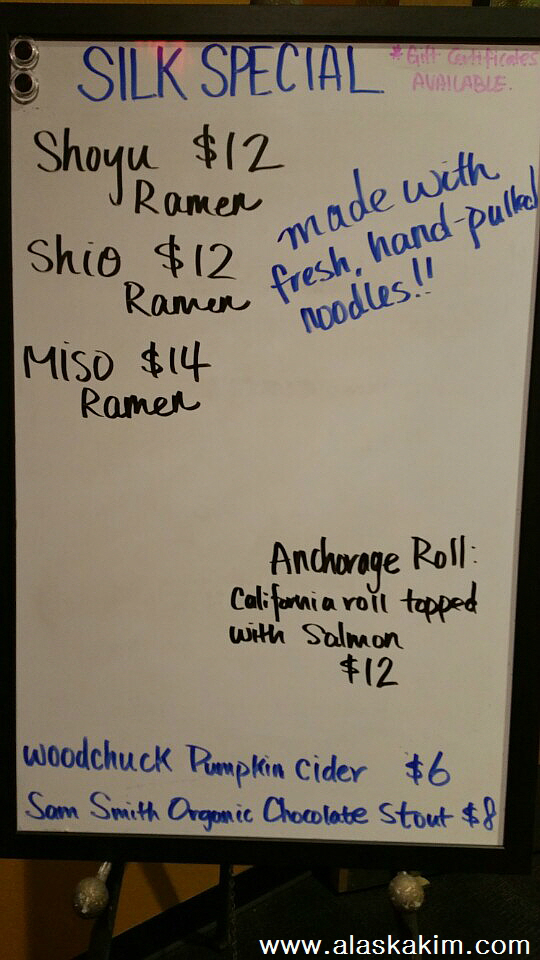 SILK SPECIAL
* Gift Certificates
AVAILABLE.
Shoyu $12
Ramen
made with
fresh, hand-pulled
noodles!!
Shio $12
Ramen
Miso $14
Ramen
Anchorage Roll:
California roll topped
with Salmon
$12
Woodchuck Pumpkin Cider $6
Sam Smith Organic Chocolate Stout $8
www.alaskakim.com